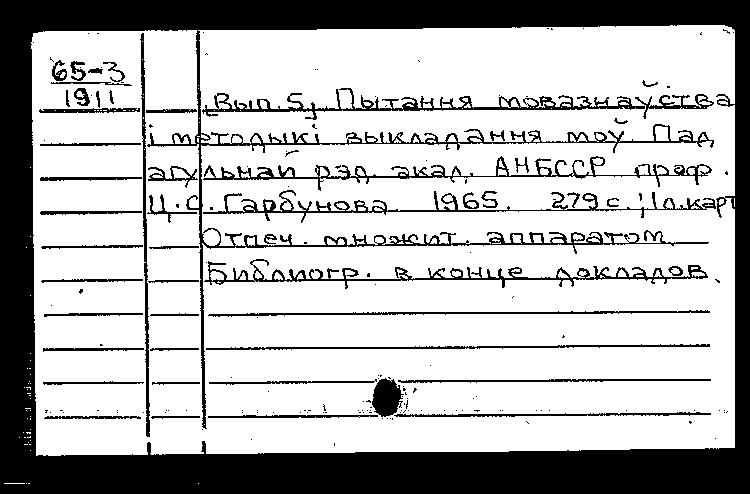 65-3
1911
[Вып. 5] Пытання мовазнаўства
і методыкі выкладання моў. Пад
агульнай рэд. акад. АНБССР проф.
Ц.С. Гарбунова 1965. 279 с.; 1 л. карт
Отпеч. множит. аппаратом.
Библиогр. в конце докладов.